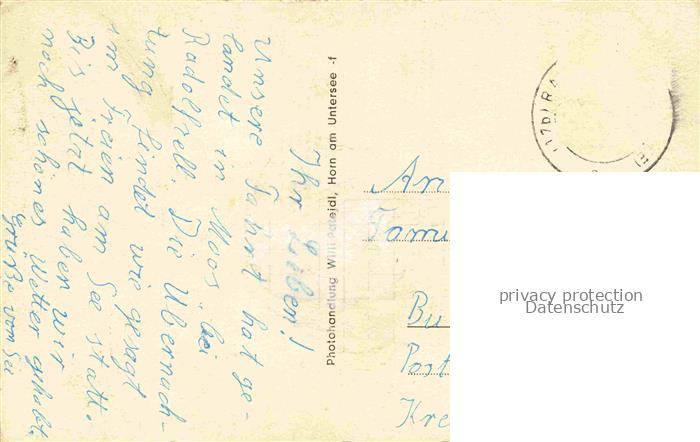 Ihr Lieben!
Unsere Fahrt hat ge-
landet in Moos bei
Radolfzell. Die Übernach-
tung findet wie gesagt
im Freien am See statt.
Bis jetzt haben wir
noch schönes Wetter gehabt.
Grüße vom See
Photohandlung Willi Patejdl, Horn am Untersee -f
(17b) RA
An
Famil
Bu
Post
Kre
privacy protection
Datenschutz